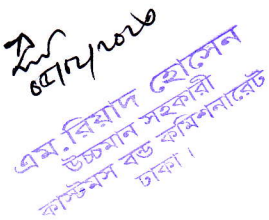 ০৫/০২/২০২৩
এম. রিয়াদ হোসেন
উচ্চমান সহকারী
কাস্টমস বন্ড কমিশনারেট
ঢাকা।